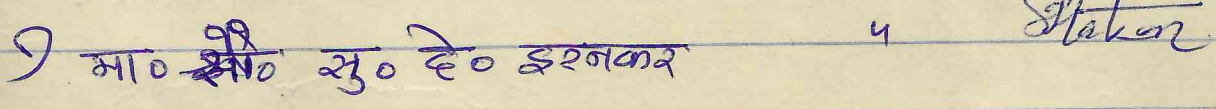 १ मा० सु० दे० इरनकर ५